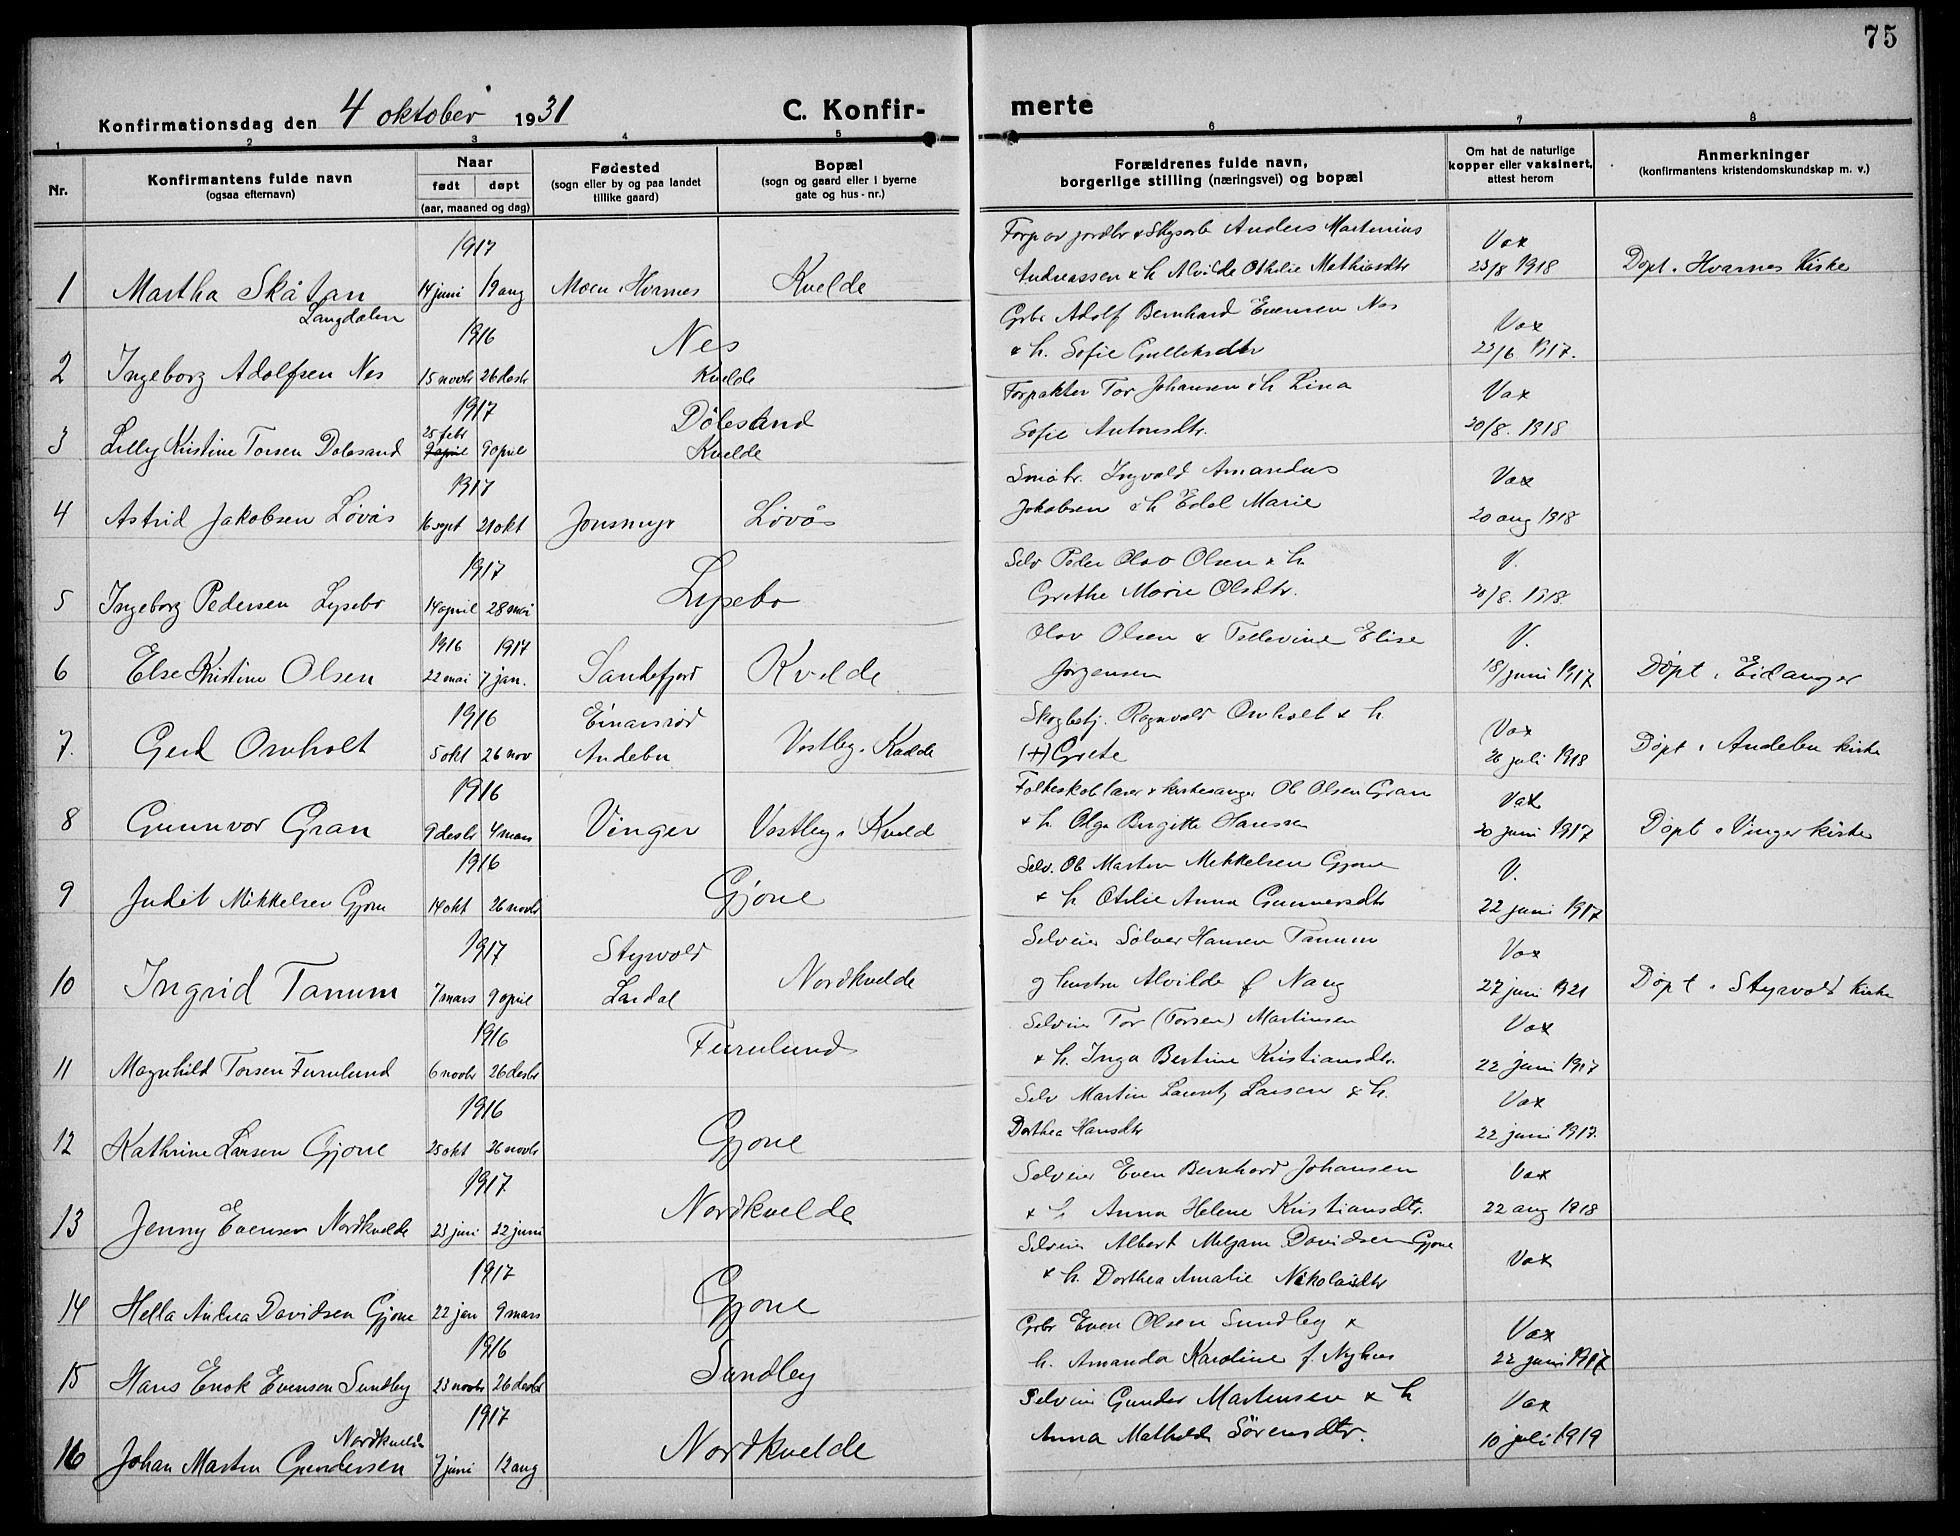 75
Konfirmationsdag den 4 oktober 1931 C. Konfir- merte
1 2 3 4 5 6 7 8
Nr. Konfirmantens fulde navn (ogsaa efternavn) Naar født døpt (aar, maaned og dag) Fødested (sogn eller by og paa landet tillike gaard) Bopæl (sogn og gaard eller i byerne gate og hus-nr.) Forældrenes fulde navn, borgerlige stilling (næringsvei) og bopæl Om hat de naturlige kopper eller vaksinert, attest herom Anmerkninger (konfirmantens kristendomskundskap m. v.)
1917 Anders Martinius Vax
1 Martha Skåtan 14 juni 19 aug Moen, Hvarnes Kvelde Andreassen & h. Alvilde Othilie Mathiasdtr 23/8 1918 Døpt i Hvarnes Kirke
Langdalen
1916 Nes Grbr Adolf Bernhard Evensen Nes Vax
2 Ingeborg Adolfsen Nes 15 novbr 26 desbr Kvelde & h. Sofie Gulleksdtr 23/6 1917.
1917 Dølesand Forpakter Tor Johansen & h Lina Vax
25 febr
3 Lilly Kristine Torsen Dølesand 9 april 9 april Kvelde Sofie Antonsdtr. 20/8. 1918
1917 Småbr. Ingvald Amandus Vax
4 Astrid Jakobsen Løvås 16 sept 21 okt Jonsmyr Løvås Jakobsen & h Edel Marie 20 aug 1918
1917 Selv Peder Olav Olsen & h. V.
5 Ingeborg Pedersen Lysebo 14 april 28 mai Lysebo Grethe Marie Olsdtr. 20/8. 1918.
1916 1917 Olav Olsen & Tellevine Elise V.
6 Else Kristine Olsen 22 mai 7 jan. Sandefjord Kvelde Jørgensen 18/juni 1917 Døpt i Eidanger
1916 Einarsrød Skogbestj. Ragnvald Omholt & h. Vax
7. Gerd Omholt 5 okt 26 nov Andebu Vestby i Kvelde (+) Grete 26 juli 1918 Døpt i Andebu kirke
1916 Folkeskolelærer & kirkesanger Ol Olsen Gran Vax
8 Gunnvor Gran 9 desbr 4 mars Vinger Vestby i Kveld & h. Olga Birgitte Hanssen 20 juni 1917 Døpt i Vinger kirke
1916 Selv. Ole Martin Mikkelsen Gjone V.
9 Judit Mikkelsen Gjone 14 okt 26 novbr Gjone & h. Otilie Anna Gunnersdtr 22 juni 1917
1917 Styrvold Selveier Sølver Hansen Tanum Vax
10 Ingrid Tanum 7 mars 9 april Lardal Nordkvelde og hustru Alvilde f Naug 27 juni 1921 Døpt i Styrvold kirke
1916 Selveier Tor (Torsen) Martinsen Vax
11 Magnhild Torsen Furulund 6 novbr 26 desbr Furulund & h. Inga Bertine Kristiansdtr. 22 juni 1917
1916 Selv Martin Lauritz Larsen & h. Vax
12 Kathrine Larsen Gjone 25 okt 26 novbr Gjone Dorthea Hansdtr 22 juni 1917.
1917. Selveier Even Bernhard Johansen Vax
13 Jenny Evensen Nordkvelde 23 juni 22 juni Nordkvelde & h Anna Helene Kristiansdtr. 22 aug 1918
1917 Selveier Albert Davidsen Gjone Vax
14 Hella Andrea Davidsen Gjone 22 jan 9 mars Gjone & h. Dorthea Amalie Nikolaisdtr
1916 Grbr Even Olsen Sundby & Vax
15 Hans Enok Evensen Sundby 23 novbr 26 desbr Sundby h. Amanda Karoline f. Nyhus 22 juni 1917
1917 Selveier Gunder Martinsen & h Vax
Nordkvelde
16 Johan Martin Gundersen 7 juni 12 aug Nordkvelde Anna Mathilde Sørensdtr. 10 juli 1919